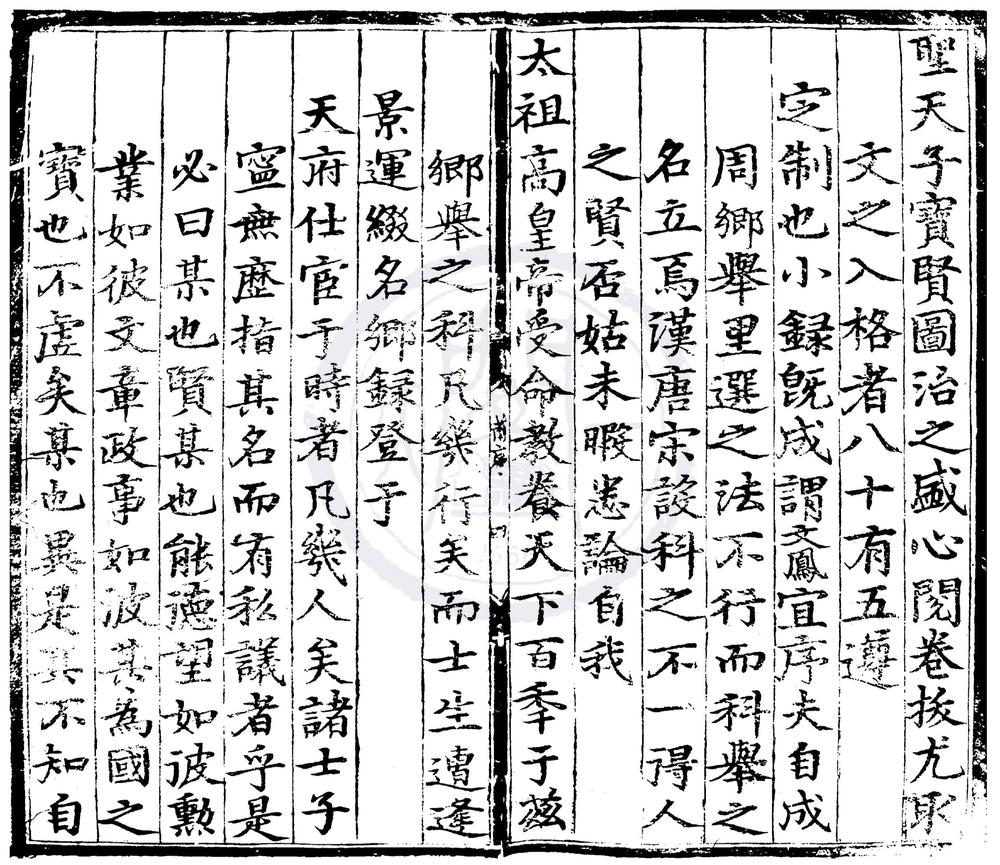 聖天子寶賢圖治之盛心閱卷拔尤取
文之入格者八十有五遵
定制也小録旣成謂文鳳宜序夫自成
周鄉舉里選之法不行而科舉之
名立焉漢唐宋設科之不一得人
之賢否姑未暇悉論自我
太祖高皇帝受命教養天下百秊于茲
鄉舉之科凡幾行矣而士生遭逢
景運綴名鄉録登于
天府仕宦于時者凡幾人矣諸士子
寧無歷指其名而有私議者乎是
必曰某也賢某也能德望如彼勲
業如彼文章政事如彼其為國之
寶也不虛矣某也異是其不知自